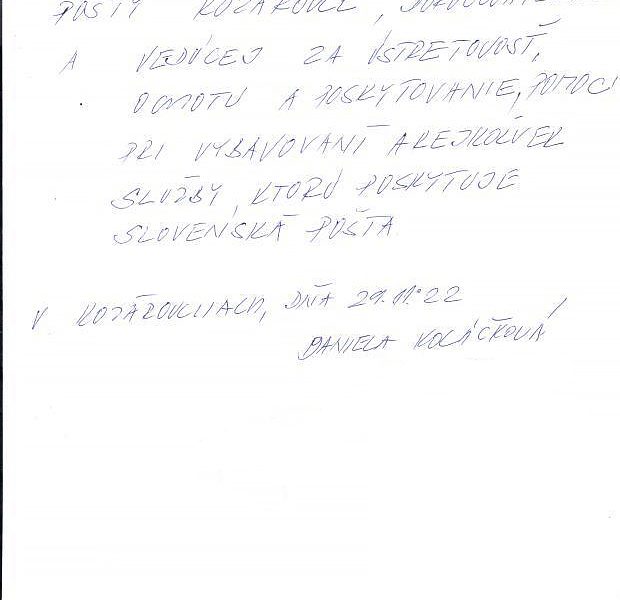 POŠTY KOZÁROVCE,
A VEDÚCEJ ZA ÚSTRETOVOSŤ,
OCHOTU A POSKYTOVANIE, POMOCI
PRI VYBAVOVANÍ AKEJKOĽVEK
SLUŽBY, KTORÚ POSKYTUJE
SLOVENSKÁ POŠTA
V KOZÁROVCIACH, DŇA 29.11.22
DANIELA KOLÁČKOVÁ